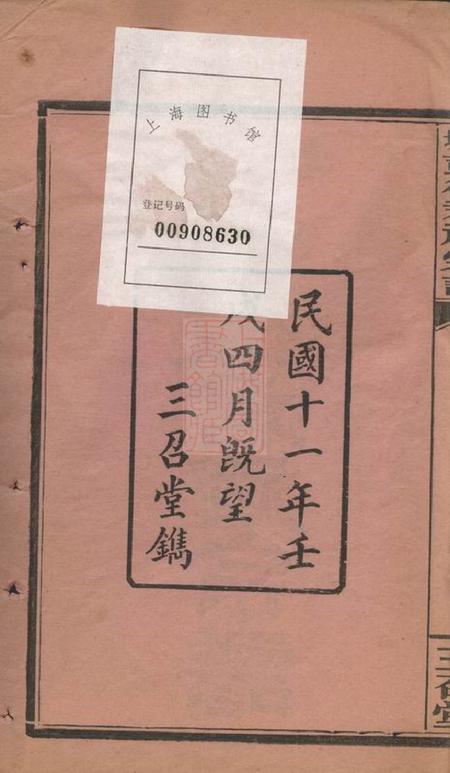 上海图书馆
登记号码
00908630
民國十一年壬
戌四月既望
三召堂鐫
三召堂